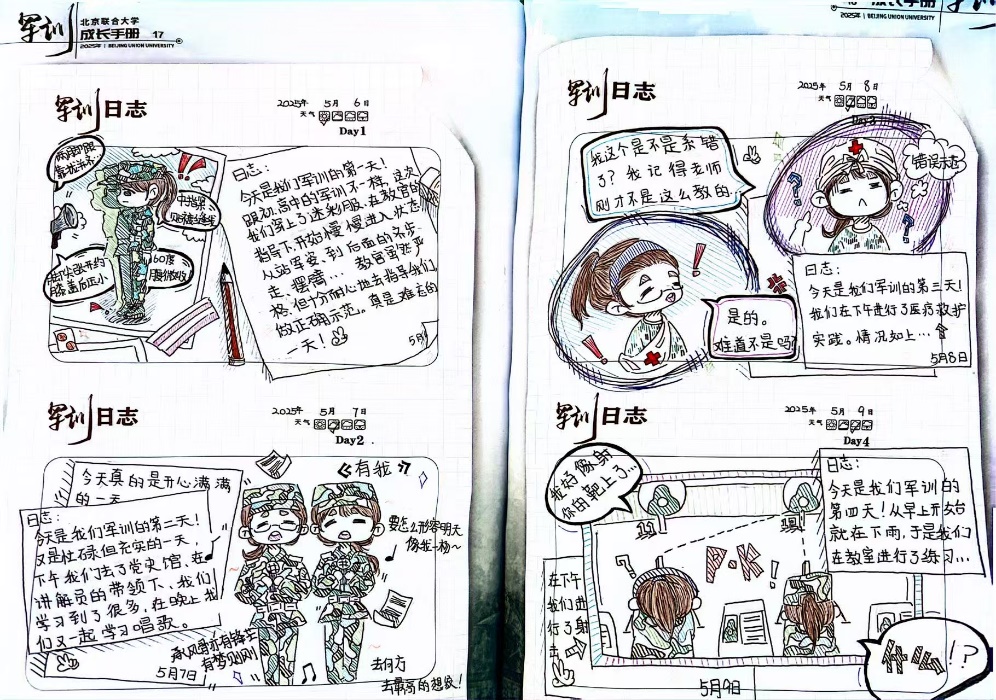 军训
北京联合大学
成长手册 17
2025年 | BEIJING UNION UNIVERSITY
军训日志
2025年 5月 6日
天气
Day1
两眼
中指
60度
日志：
今天是我们军训的第一天！
跟初、高中的军训不一样，这次
我们穿上了迷彩服，在教官的
指导下，开始慢慢进入状态
从站军姿，到后面的齐步
走、摆臂…… 教官虽然严
格，但十分耐心地去指导我们
做正确示范。真是难忘的
一天！
5月
军训日志
2025年 5月 7日
天气
Day2
今天真的是开心满满
的一天
日志：
今天是我们军训的第二天！
又是忙碌但充实的一天！
下午我们去了党史馆，在
讲解员的带领下、我们
学习到了很多，在晚上我
们又一起学习唱歌。
5月7日
《有我》
要怎么形容明天
像我一样~
承风骨亦有锋芒
有梦则刚
去何方
去最高的想象！
2025年 | BEIJING UNION UNIVERSITY
军训日志
2025年 5月 8日
天气
我这个是不是系错
了？我记得老师
刚才不是这么教的
错误示范
是的。
难道不是吗？
日志：
今天是我们军训的第三天！
我们在下午进行了医疗救护
实践。情况如上…
5月8日
军训日志
2025年 5月 9日
天气
Day4
我好像射
你的靶上了…
日志：
今天是我们军训的
第四天！从早上开始
就在下雨，于是我们
在教室进行了练习…
P·K！
在下午
我们进
行了射
击
什么！？
5月9日